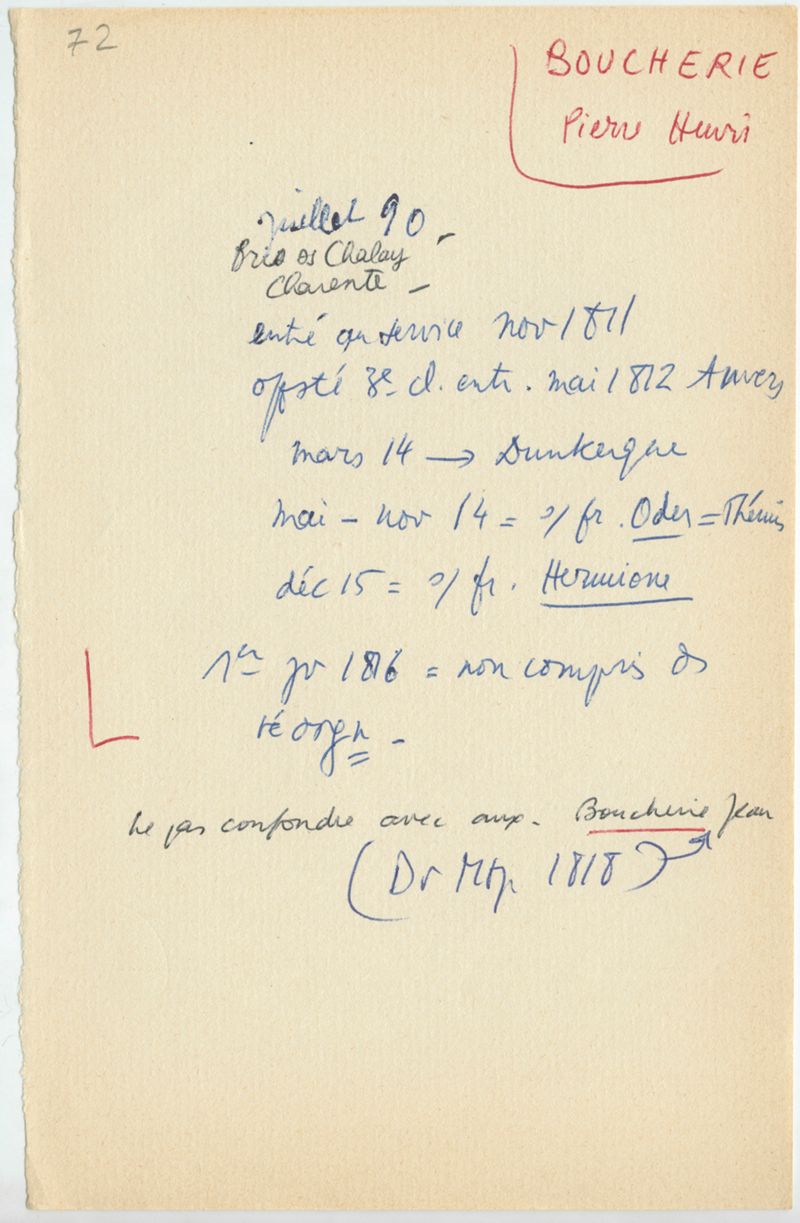 72
BOUCHERIE
Pierre Henri
juillet 90 -
Brie ss Chalay
Charente -
entré au service nov 1811
3e cl. entr. mai 1812 Anvers
mars 14 → Dunkerque
mai - nov 14 = s/ fr. Oder = Thémis
déc 15 = s/ fr. Hermione
1er jv 1816 = non compris ds
réorgn -
Ne pas confondre avec aux. Boucherie Jean
(Dr Mtp. 1818)